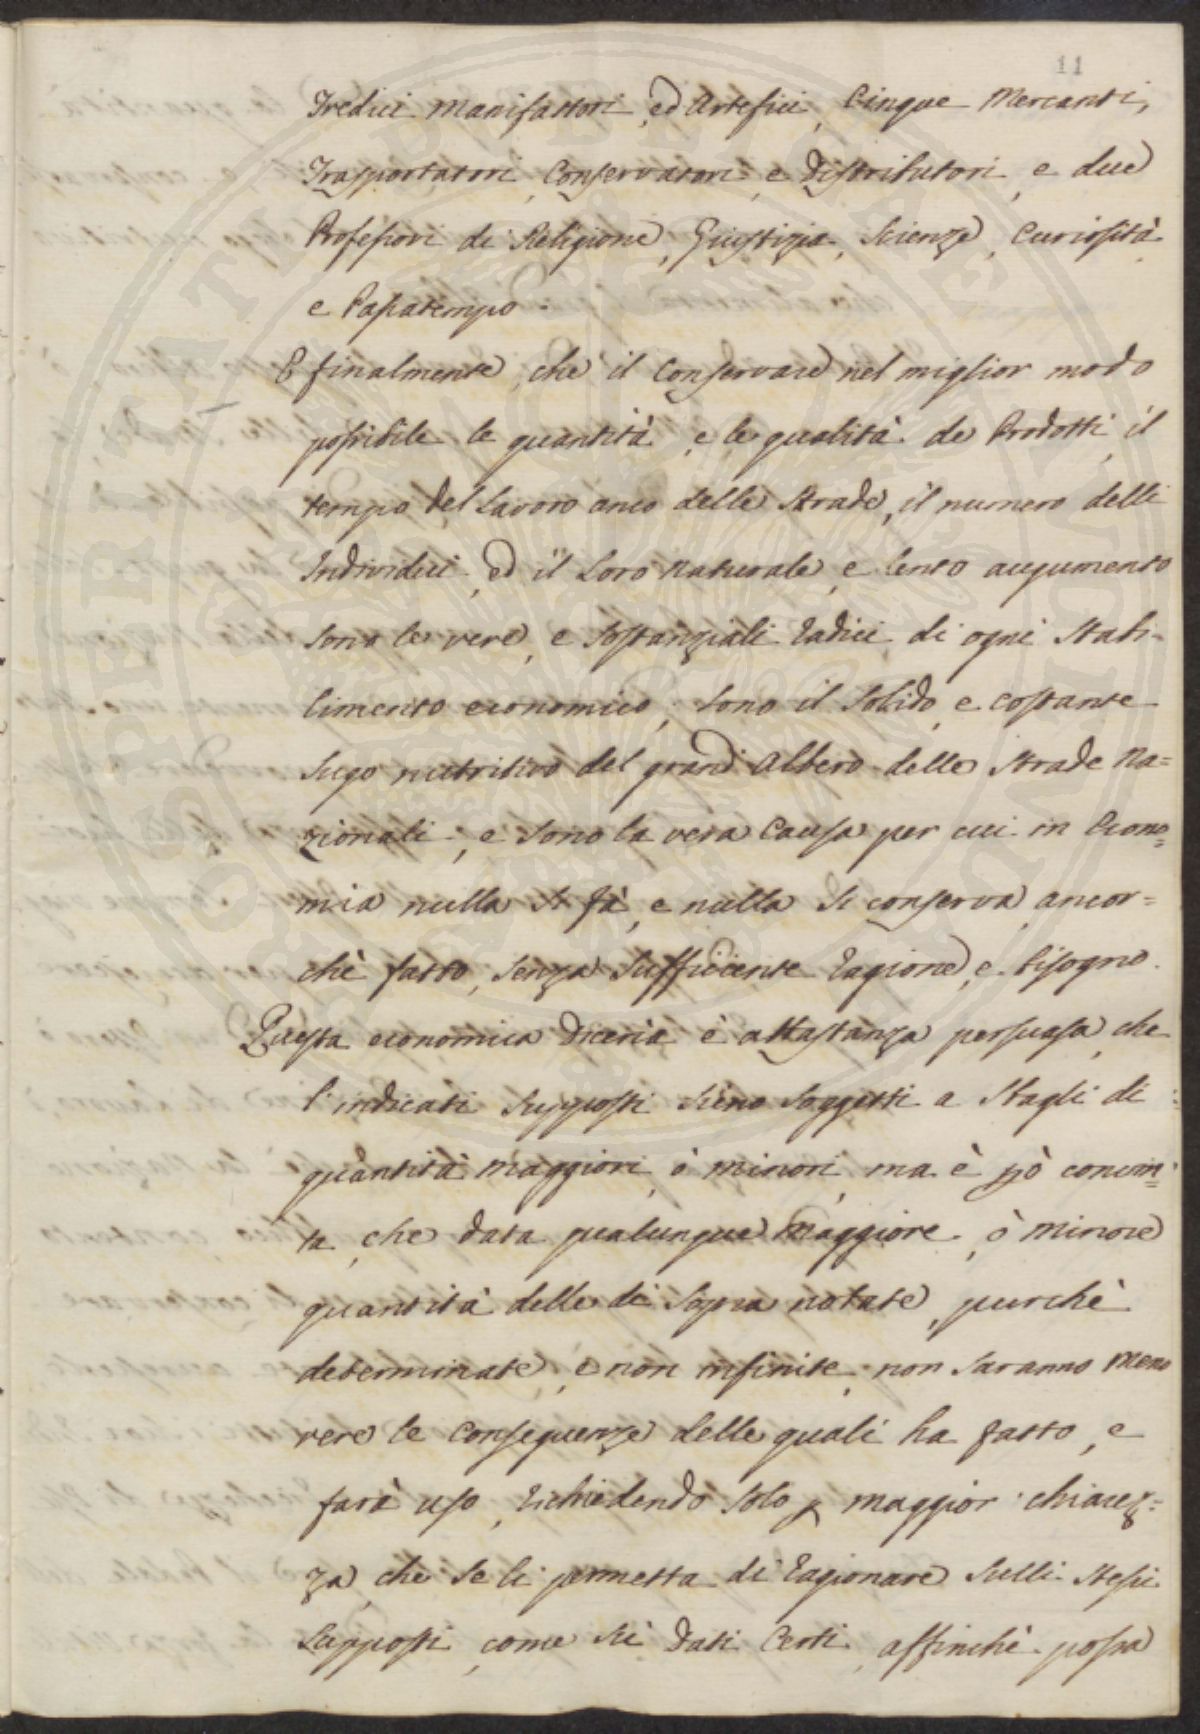 11
Tredici Manifattori, ed Artefici, Cinque Mercanti,
Trasportatori, Conservatori, e Distributori, e due
Professori di Religione, Giustizia, Scienze, Curiosità
e Passatempo.
E finalmente, che il Conservare nel miglior modo
possibile le quantità, e le qualità de Prodotti, il
tempo del Lavoro anco delle Strade, il numero delli
Individui, ed il Loro naturale, e lento augumento
sono le vere, e sostanziali Radici di ogni Stabi-
limento economico, sono il Solido, e costante
Sugo nutritivo del grand' Albero delle Strade Na=
zionali, e sono la vera Causa per cui in Econo=
mia nulla si fà, e nulla si conserva, ancor=
chè fatto, senza Sufficiente Ragione, e bisogno.
Questa economica Diceria è abbastanza persuasa, che
l'indicati Supposti sieno Soggetti a Sbagli di
quantità maggiori, ò minori, ma è pò convin=
ta, che data qualunque Maggiore, ò Minore
quantità delle di Sopra notate, purchè
determinate, e non infinite, non Saranno Meno
vere le Conseguenze delle quali ha fatto, e
farà uso, Richiedendo Solo p maggior chiarez=
za, che Se li permetta di Ragionare Sulli Stessi
Supposti, come Sù Dati Certi, affinchè possa